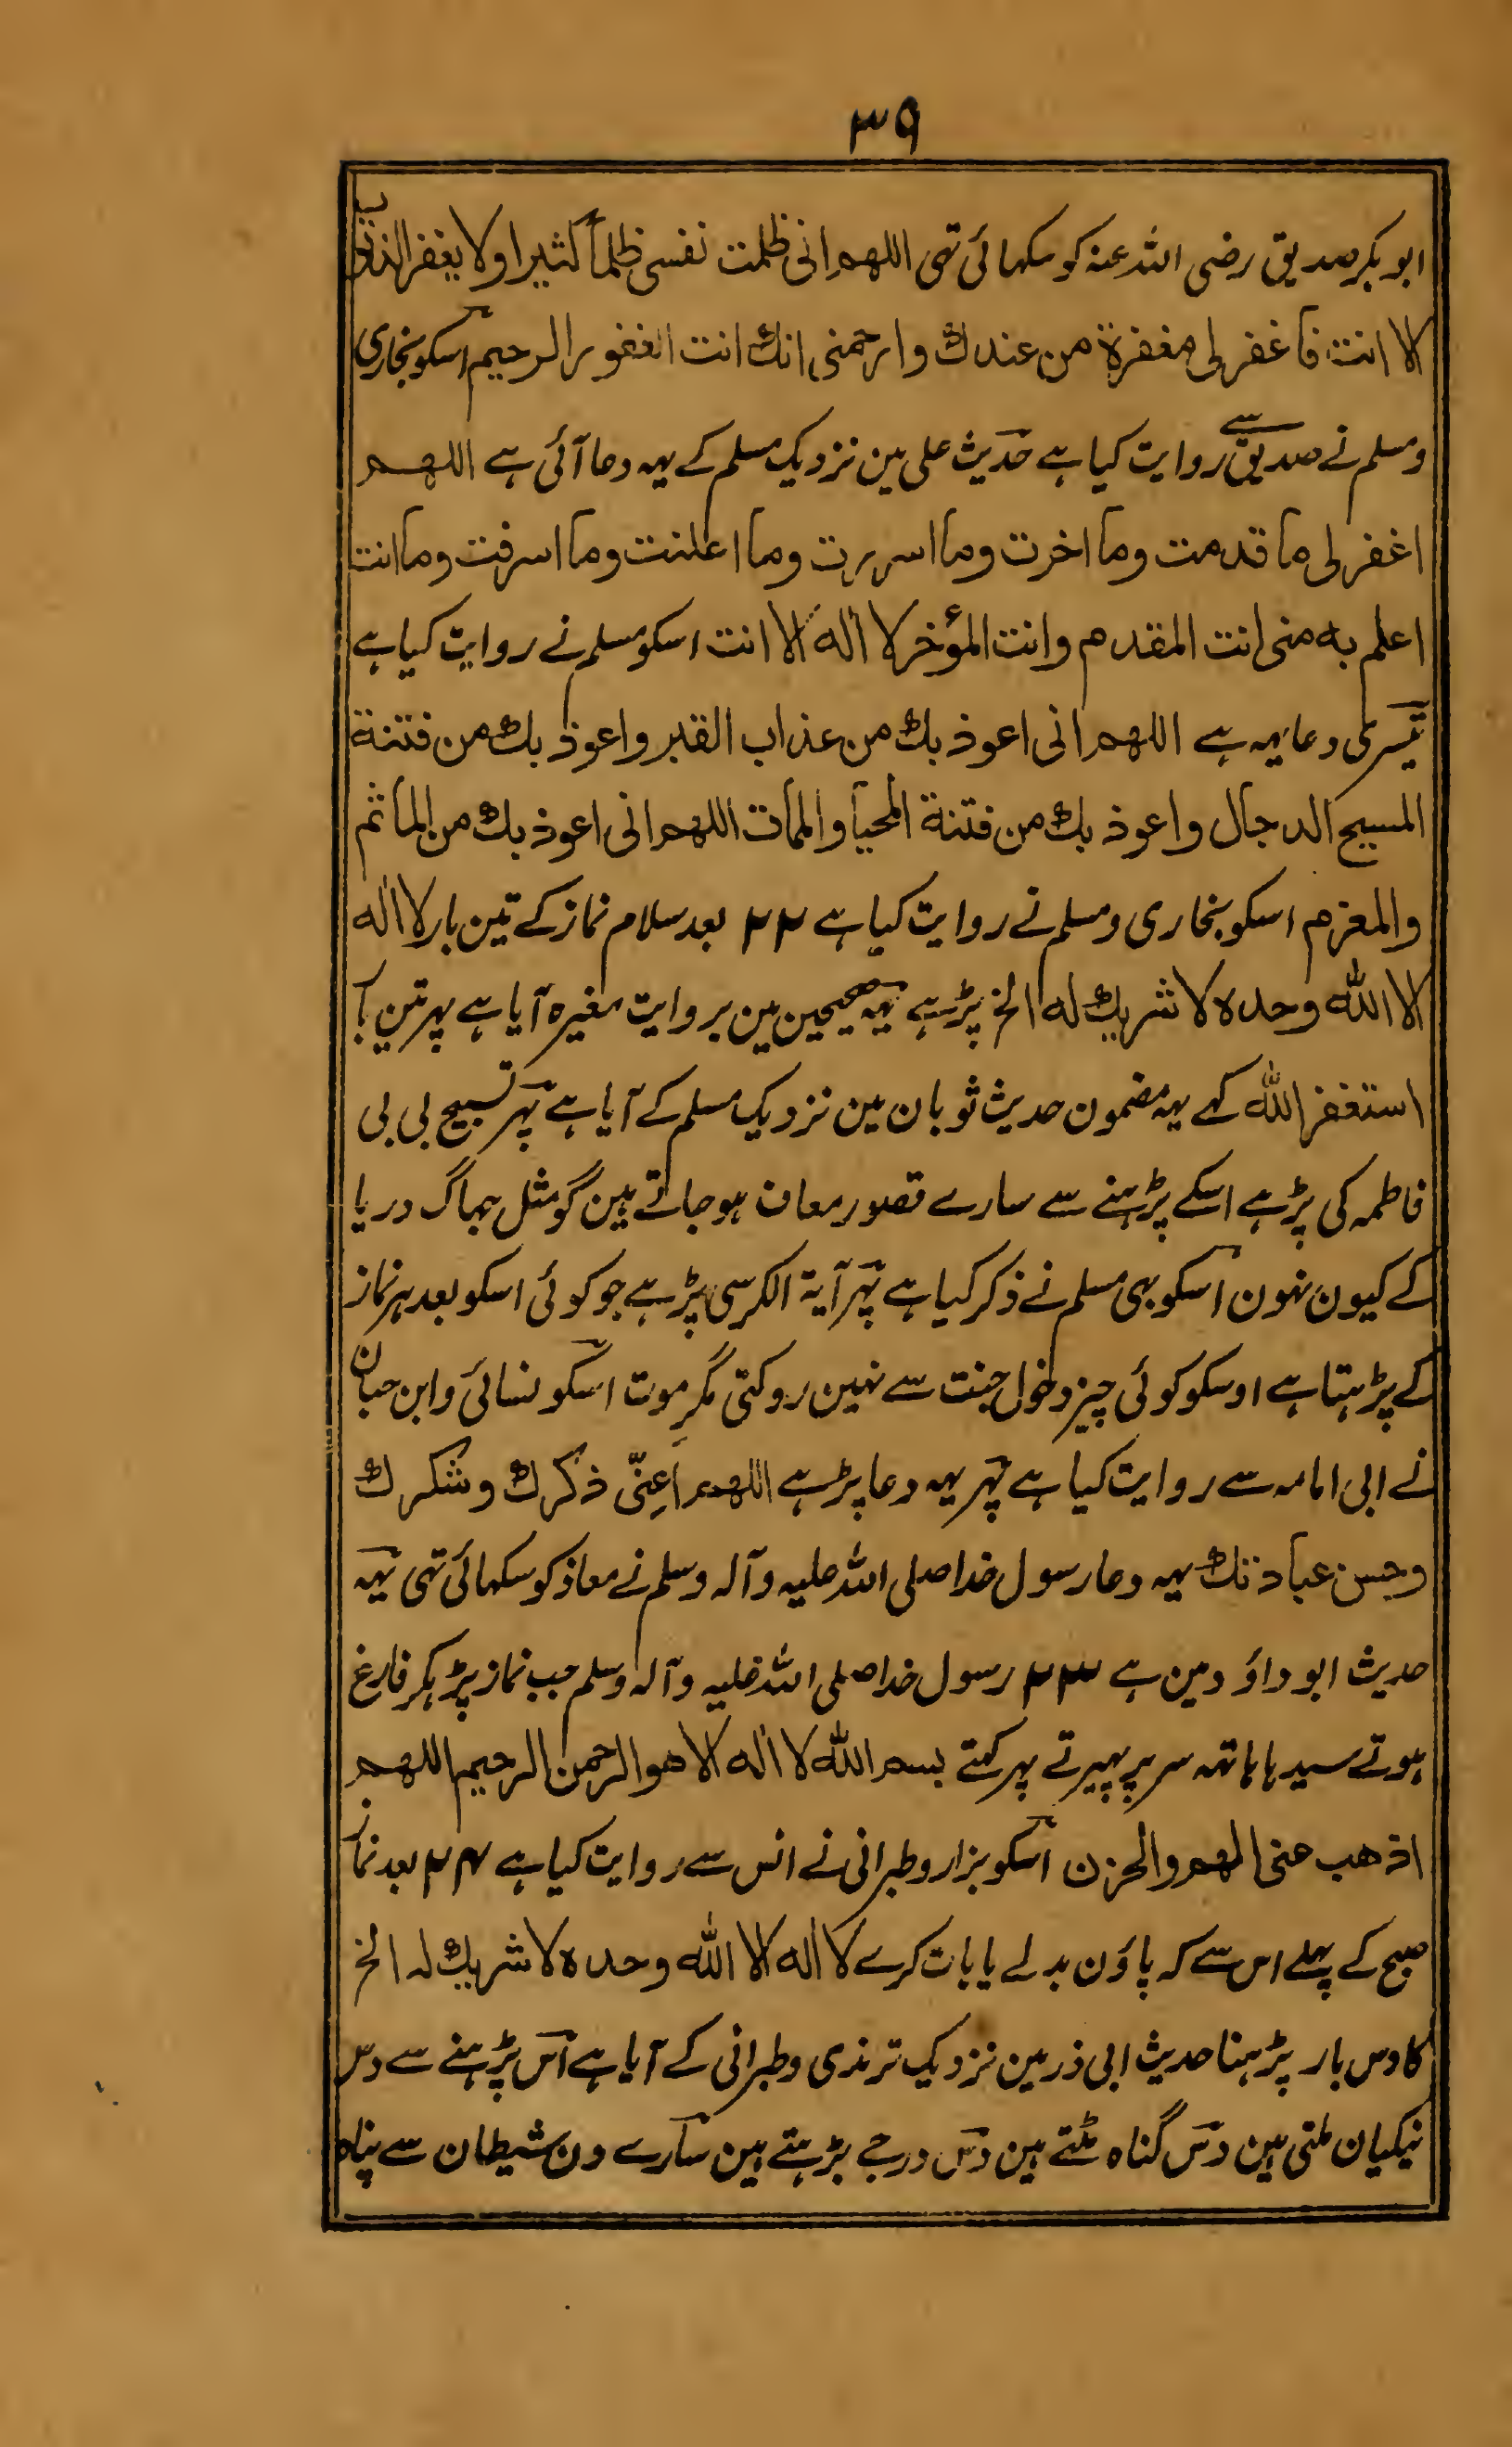 ۳۹
ابو بکر صدیق رضی اللہ عنہ کو سکہائی تہی اللهم انی ظلمت نفسی ظلماً کثیرا ولا یغفر الذنوب
الا انت فاغفر لی مغفرة من عندك وارحمنی انك انت الغفور الرحیم اسکو بخاری
و مسلم نے صدیق سے روایت کیا ہے حدیث علی مین نزدیک مسلم کے یہہ دعا آئی ہے اللهم
اغفر لی ما قدمت وما اخرت وما اسررت وما اعلنت وما اسرفت وما انت
اعلم به منی انت المقدم وانت المؤخر لا اله الا انت اسکو مسلم نے روایت کیا ہے
تیسری دعا یہہ ہے اللهم انی اعوذ بك من عذاب القبر واعوذ بك من فتنة
المسیح الدجال واعوذ بك من فتنة المحیا والممات اللهم انی اعوذ بك من المأثم
والمغرم اسکو بخاری و مسلم نے روایت کیا ہے ۴۲ بعد سلام نماز کے تین بار لا اله
الا الله وحده لا شریك له الخ پڑہے یہہ صحیحین مین بروایت مغیرہ آیا ہے پہر تین بار
استغفر الله کہے یہہ مضمون حدیث ثوبان مین نزدیک مسلم کے آیا ہے پہر تسبیح بی بی
فاطمہ کی پڑہے اسکے پڑہنے سے سارے قصور معاف ہو جاتے ہین گو مثل جہاگ دریا
کے کیون نہون اسکو بہی مسلم نے ذکر کیا ہے پہر آیة الکرسی پڑہے جو کوئی اسکو بعد ہر نماز
کے پڑہتا ہے اوسکو کوئی چیز دخول جنت سے نہین روکتی مگر موت اسکو نسائی و ابن حبان
نے ابی امامہ سے روایت کیا ہے پہر یہہ دعا پڑہے اللهم اَعِنّی ذکرك وشکرك
وحسن عبادتك یہہ دعا رسول خدا صلی اللہ علیہ وآلہ وسلم نے معاذ کو سکہائی تہی یہہ
حدیث ابو داؤد مین ہے ۴۳ رسول خدا صلی اللہ علیہ وآلہ وسلم جب نماز پڑہکر فارغ
ہوتے سیدہا ہاتہہ سر پر پہیرتے پہر کہتے بسم الله لا اله الا هو الرحمن الرحیم اللهم
اذهب عنی الهم والحزن اسکو بزار و طبرانی نے انس سے روایت کیا ہے ۴۴ بعد نماز
صبح کے پہلے اس سے کہ پاؤن بدلے یا بات کرے لا اله الا الله وحده لا شریك له الخ
کا دس بار پڑہنا حدیث ابی ذر مین نزدیک ترمذی و طبرانی کے آیا ہے اس پڑہنے سے دس
نیکیان ملتی ہین دس گناہ مٹتے ہین دس درجے بڑہتے ہین سارے دن شیطان سے پناہ